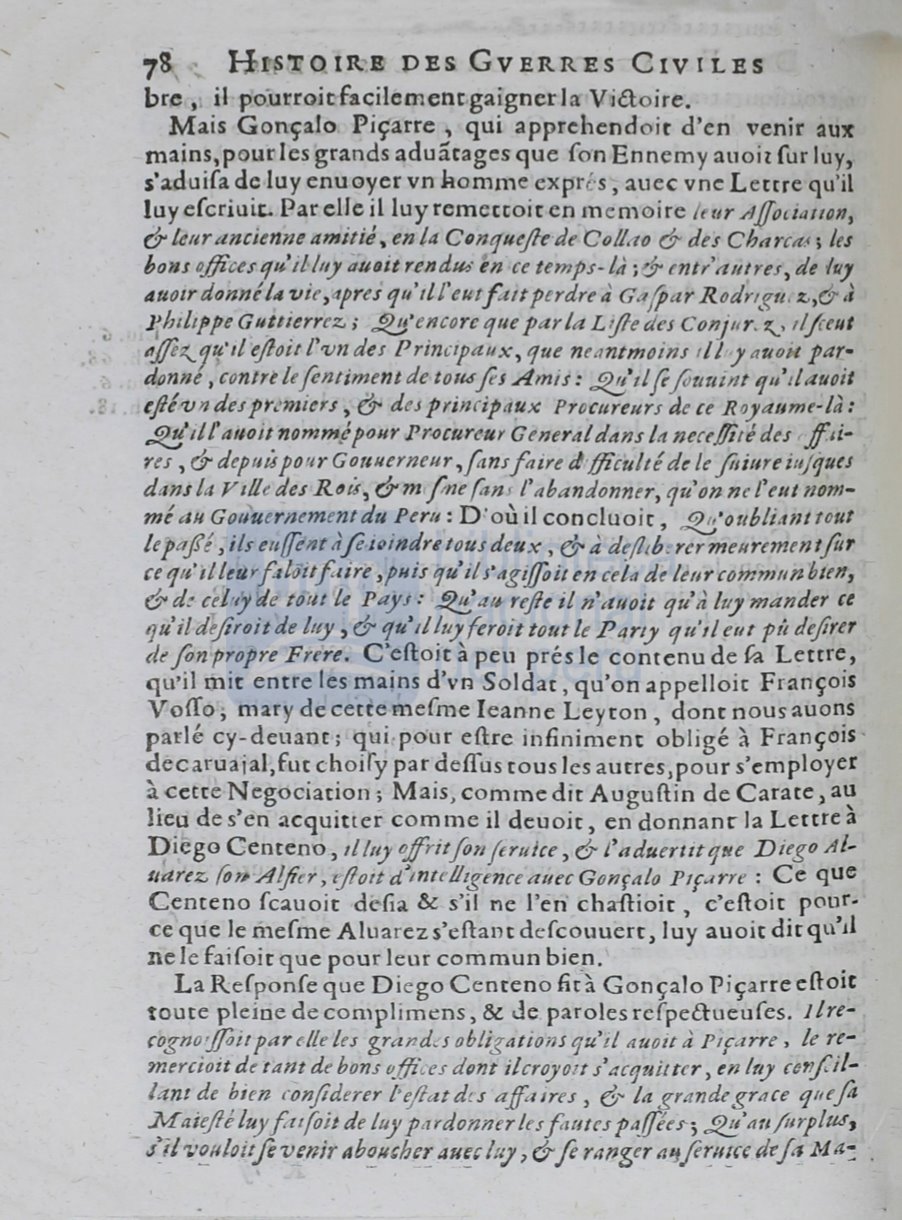 78 HISTOIRE DES GVERRES CIVILES
bre, il pourroit facilement gaigner la Victoire.
Mais Gonçalo Piçarre, qui apprehendoit d'en venir aux
mains, pour les grands aduãtages que ſon Ennemy auoit ſur luy,
s'aduiſa de luy enuoyer vn homme exprés, auec vne Lettre qu'il
luy eſcriuit. Par elle il luy remettoit en memoire leur Aſſociation,
& leur ancienne amitié, en la Conqueſte de Collao & des Charcas; les
bons offices qu'il luy auoit rendus en ce temps-là; & entr'autres, de luy
auoir donné la vie, apres qu'il l'eut fait perdre à Gaſpar Rodriguez, & à
Philippe Guttierrez; Qu'encore que par la Liſte des Conjurez, il ſceut
aſſez qu'il eſtoit l'vn des Principaux, que neantmoins il luy auoit par-
donné, contre le ſentiment de tous ſes Amis: Qu'il ſe ſouuint qu'il auoit
eſté vn des premiers, & des principaux Procureurs de ce Royaume-là:
Qu'il l'auoit nommé pour Procureur General dans la neceſſité des affai-
res, & depuis pour Gouuerneur, ſans faire difficulté de le ſuiure iuſques
dans la Ville des Rois, & meſme ſans l'abandonner, qu'on ne l'eut nom-
mé au Gouuernement du Peru: D'où il concluoit, Qu'oubliant tout
le paßé, ils euſſent à ſe ioindre tous deux, & à deliberer meurement ſur
ce qu'il leur faloit faire, puis qu'il s'agiſſoit en cela de leur commun bien,
& de celuy de tout le Pays: Qu'au reſte il n'auoit qu'à luy mander ce
qu'il deſiroit de luy, & qu'il luy feroit tout le Party qu'il eut pû deſirer
de ſon propre Frere. C'eſtoit à peu prés le contenu de ſa Lettre,
qu'il mit entre les mains d'vn Soldat, qu'on appelloit François
Voſſo, mary de cette meſme Ieanne Leyton, dont nous auons
parlé cy-deuant; qui pour eſtre infiniment obligé à François
decaruajal, fut choiſy par deſſus tous les autres, pour s'employer
à cette Negociation; Mais, comme dit Auguſtin de Carate, au
lieu de s'en acquitter comme il deuoit, en donnant la Lettre à
Diego Centeno, il luy offrit ſon ſeruice, & l'aduertit que Diego Al-
uarez ſon Alfier, eſtoit d'intelligence auec Gonçalo Piçarre: Ce que
Centeno ſcauoit deſia & s'il ne l'en chaſtioit, c'eſtoit pour-
ce que le meſme Aluarez s'eſtant deſcouuert, luy auoit dit qu'il
ne le faiſoit que pour leur commun bien.
La Reſponſe que Diego Centeno fit à Gonçalo Piçarre eſtoit
toute pleine de complimens, & de paroles reſpectueuſes. Il re-
cognoiſſoit par elle les grandes obligations qu'il auoit à Piçarre, le re-
mercioit de tant de bons offices dont il croyoit s'acquitter, en luy conſeil-
lant de bien conſiderer l'eſtat des affaires, & la grande grace que ſa
Maieſté luy faiſoit de luy pardonner les fautes paſſées; Qu'au ſurplus,
s'il vouloit ſe venir aboucher auec luy, & ſe ranger au ſeruice de ſa Ma-